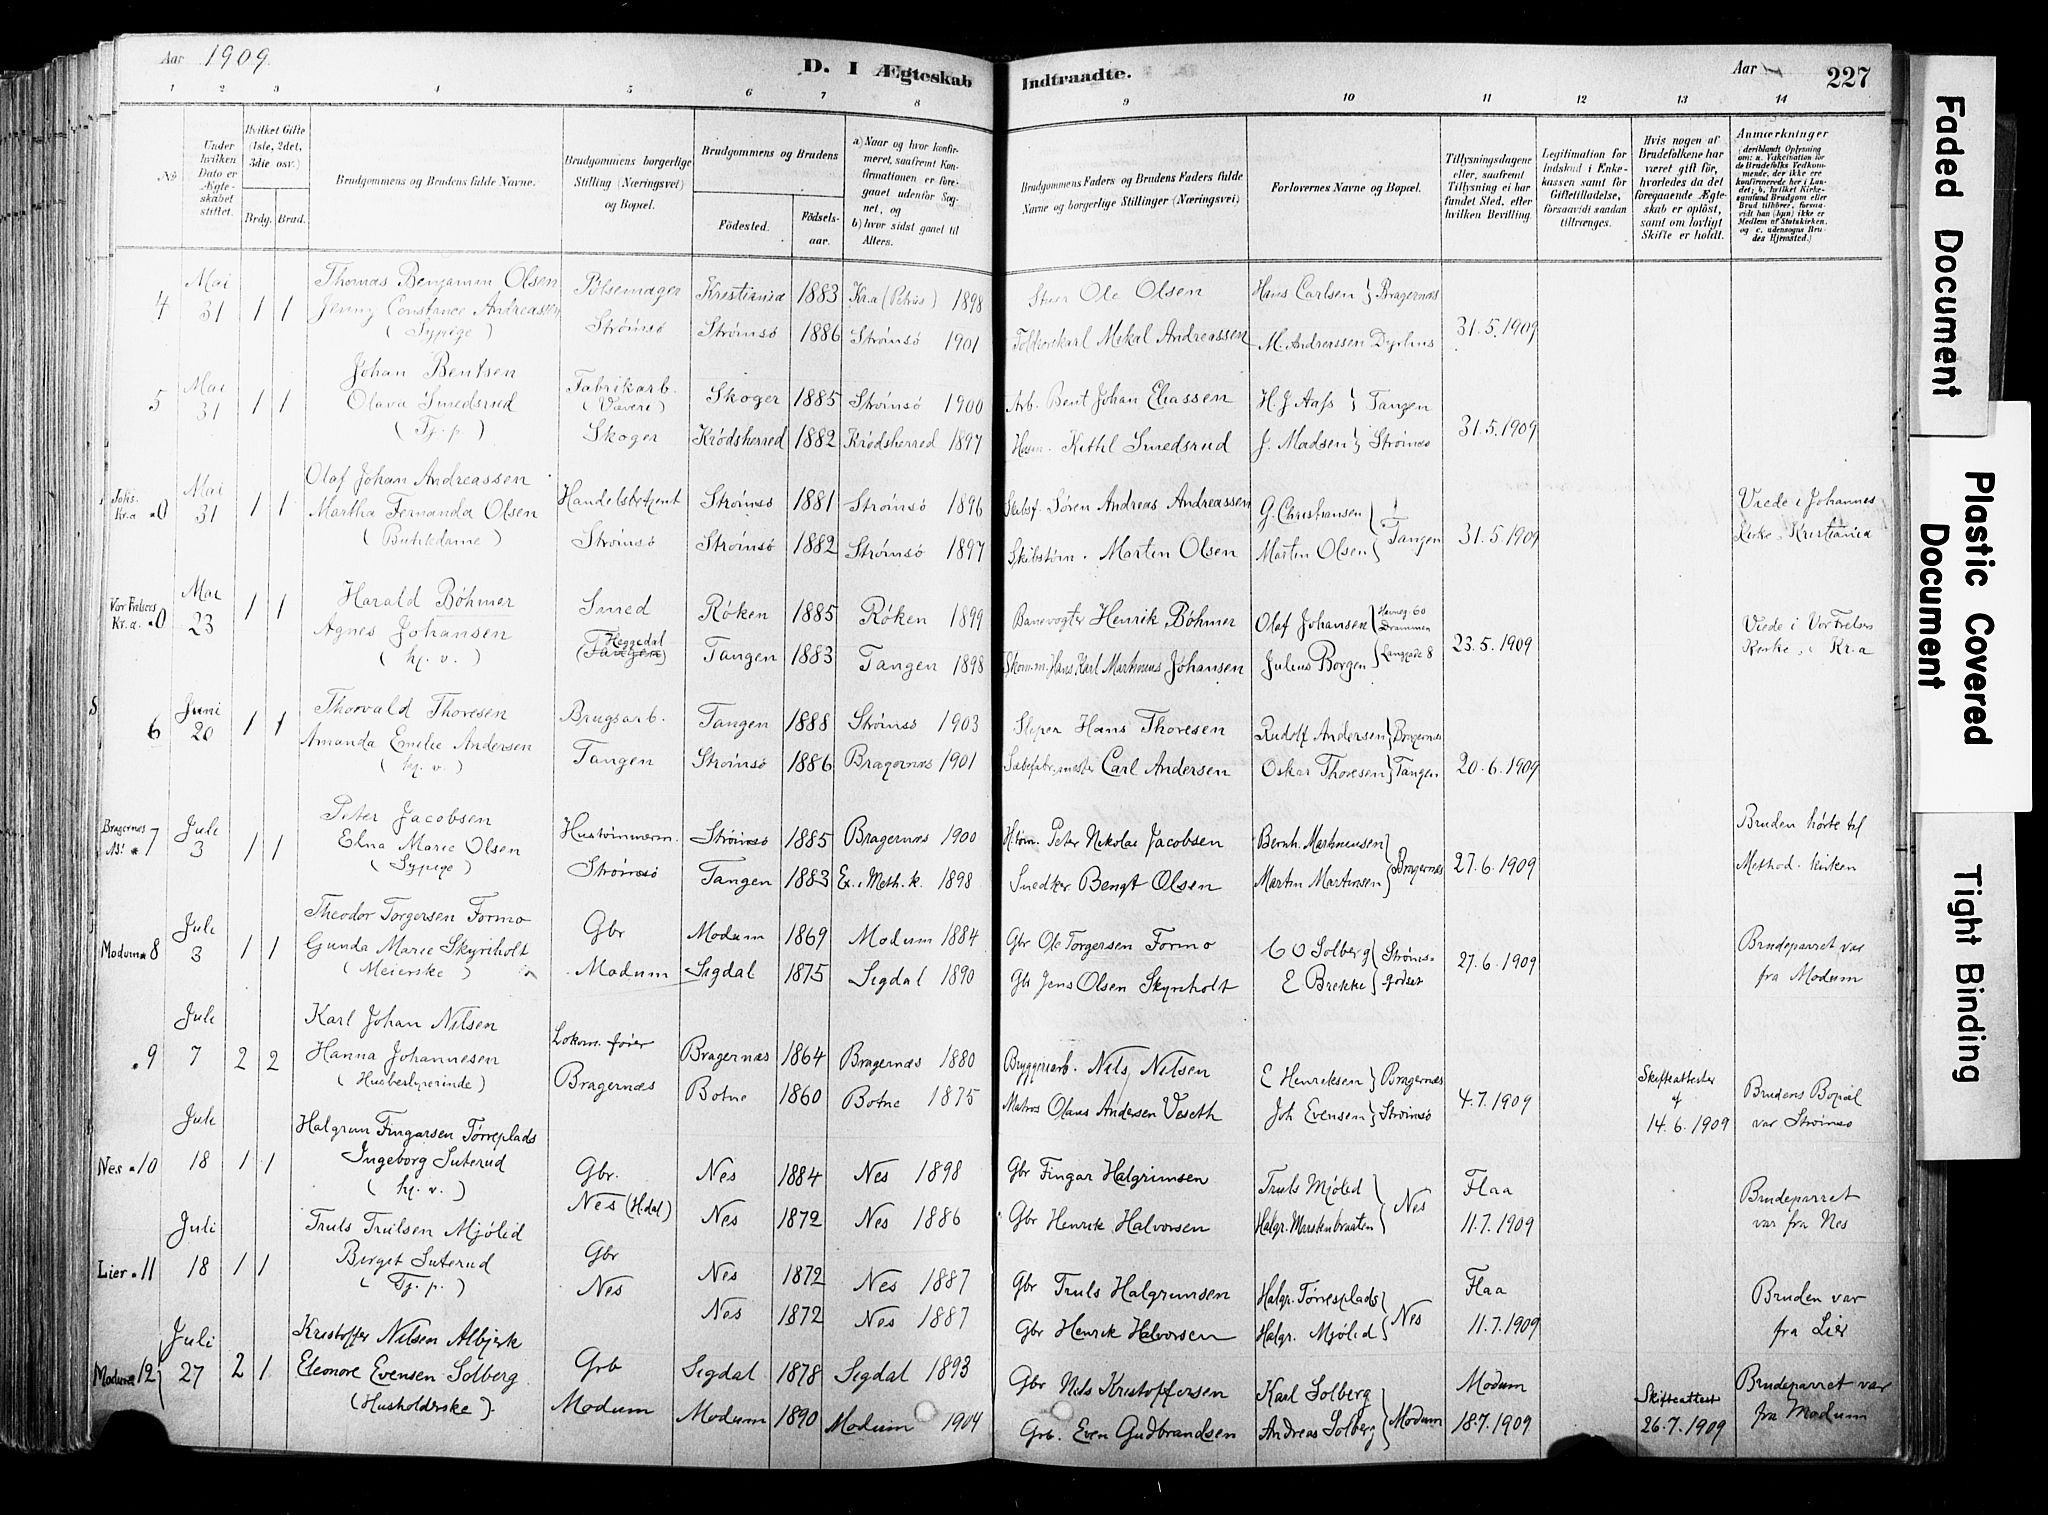 Aar 1909.
D. I Ægteskab Indtraadte.
Aar
227
1 2 3 4 5 6 7 8 9 10 11 12 13 14
No
Under hvilken Dato er Ægteskabet stiftet.
Hvilket Gifte (1ste, 2det, 3die osv.)
Brdg. Brud.
Brudgommens og Brudens fulde Navne.
Brudgommens borgerlige Stilling (Næringsvei) og Bopæl.
Brudgommens og Brudens
Fødested. Fødselsaar.
a) Naar og hvor konfirmeret, saafremt Konfirmationen er foregaaet udenfor Sognet, og
b) hvor sidst gaaet til Alters.
Brudgommens Faders og Brudens Faders fulde Navne og borgerlige Stillinger (Næringsvei)
Forlovernes Navne og Bopæl.
Tillysningsdagene eller, saafremt Tillysning ei har fundet Sted, efter hvilken Bevilling.
Legitimation for Indskud i Enkekassen samt for Giftetilladelse, forsaavidt saadan tiltrænges.
Hvis nogen af Brudefolkene har været gift før, hvorledes da det foregaaende Ægteskab er opløst, samt om lovligt Skifte er holdt.
Anmærkninger
(deriblandt Oplysning om: a. Vakcination for de Brudefolks Vedkommende, der ikke ere konfirmerede her i Landet; b. hvilket Kirkesamfund Brudgom eller Brud tilhører, forsaavidt han (hun) ikke er Medlem af Statskirken, og c. udensogns Brudes Hjemsted.)
4 Mai 31 1 1 Thomas Benjamin Olsen Pølsemager Kristiania 1883 Kr.a (Petrus) 1898 Ole Olsen Hans Carlsen } Bragernæs
Jenny Constance Andreassen (Sypige) Strømsø Strømsø 1886 Strømsø 1901 Mikal Andreassen M. Andreassen 31.5.1909
5 Mai 31 1 1 Johan Bentsen Fabrikarb. (Væveri) Skoger 1885 Strømsø 1900 Arb. Bent Johan Eliassen H. J. Aass } Tangen
Olava Smedsrud (Tj. p.) Skoger Krødsherred 1882 Krødsherred 1897 Kittil Smedsrud J. Madsen } Strømsø 31.5.1909
Johs. Kr.a 0 Mai 31 1 1 Olaf Johan Andreassen Handelsbetjent Strømsø 1881 Strømsø 1896 Søren Andreas Andreassen G. Christiansen } Tangen
Martha Fernanda Olsen (Butikdame) Strømsø Strømsø 1882 Strømsø 1897 Skibstøm. Martin Olsen Martin Olsen 31.5.1909 Viede i Johannes Kirke, Kristiania
Vor Frelsers Kr.a. 0 Mai 23 1 1 Harald Bøhmer Smed Røken 1885 Røken 1899 Banevogter Henrik Bøhmer Olaf Johansen } Havneg. 60 Drammen
Agnes Johansen (hj. v.) Heggedal (Tangen) Tangen 1883 Tangen 1898 Skom.m. Hans Karl Martinius Johansen Julius Borgen } Langgade 8 23.5.1909 Viede i Vor Frelsers Kirke, i Kr.a
S
6 Juni 20 1 1 Thorvald Thoresen Brugsarb. Tangen 1888 Strømsø 1903 Sliper Hans Thoresen Rudolf Andersen } Bragernæs
Amanda Emelie Andersen (hj. v.) Tangen Strømsø 1886 Bragernæs 1901 Sæbefabr.mester Carl Andersen Oskar Thoresen } Tangen 20.6.1909
Bragernæs 7 Juli 3 1 1 Peter Jacobsen Hustømmerm. Strømsø 1885 Bragernæs 1900 H.tøm. Peter Nikolai Jacobsen Bernh. Martinusen } Bragernæs
Elna Marie Olsen (Sypige) Strømsø Tangen 1883 Ex. i Meth. k. 1898 Snedker Bengt Olsen Martin Martinsen 27.6.1909 Bruden hørte til Method. kirken
Modum 8 Juli 3 1 1 Theodor Torgersen Formo Gbr Modum 1869 Modum 1884 Gbr Ole Torgersen Formo C O Solberg } Strømsgodset
Gunda Marie Skyriholt (Meierske) Modum Sigdal 1875 Sigdal 1890 Gbr Jens Olsen Skyriholt E Brekke 27.6.1909 Brudeparret var fra Modum
9 Juli 7 2 2 Karl Johan Nilsen Lokom. fører Bragernæs 1864 Bragernæs 1880 Bryggeriarb. Nils Nilsen E Henriksen } Bragernæs
Hanna Johannesen (Husbestyrerinde) Bragernæs Botne 1860 Botne 1875 Matros Olaus Andersen Veseth Joh Evensen } Strømsø 4.7.1909 Skifteattester af 14.6.1909 Brudens Bopæl var Strømsø
Nes 10 Juli 18 1 1 Halgrim Fingarsen Tørreplads Gbr. Nes 1884 Nes 1898 Gbr Fingar Halgrimsen Truls Mjølid } Nes Flaa
Ingeborg Suterud (hj. v.) Nes (H.dal) Nes 1872 Nes 1886 Gbr Henrik Halvorsen Halgr. Marskenbraaten 11.7.1909 Brudeparret var fra Nes
Lier 11 Juli 18 1 1 Truls Trulsen Mjølid Gbr Nes 1872 Nes 1887 Gbr Truls Halgrimsen Halgr. Tørresplads } Nes Flaa
Berget Suterud (Tj. p.) Nes Nes 1872 Nes 1887 Gbr Henrik Halvorsen Halgr. Mjølid 11.7.1909 Bruden var fra Lier
Modum 12 Juli 27 2 1 Kristoffer Nilsen Albjerk Grb Sigdal 1878 Sigdal 1893 Gbr Nils Kristoffersen Karl Solberg } Modum Modum
Eleonore Evensen Solberg (Husholderske) Modum Modum 1890 Modum 1904 Grb. Even Gudbrandsen Andreas Solberg 18.7.1909 Skifteattest 26.7.1909 Brudeparret var fra Modum
Faded Document
Plastic Covered Document
Tight Binding